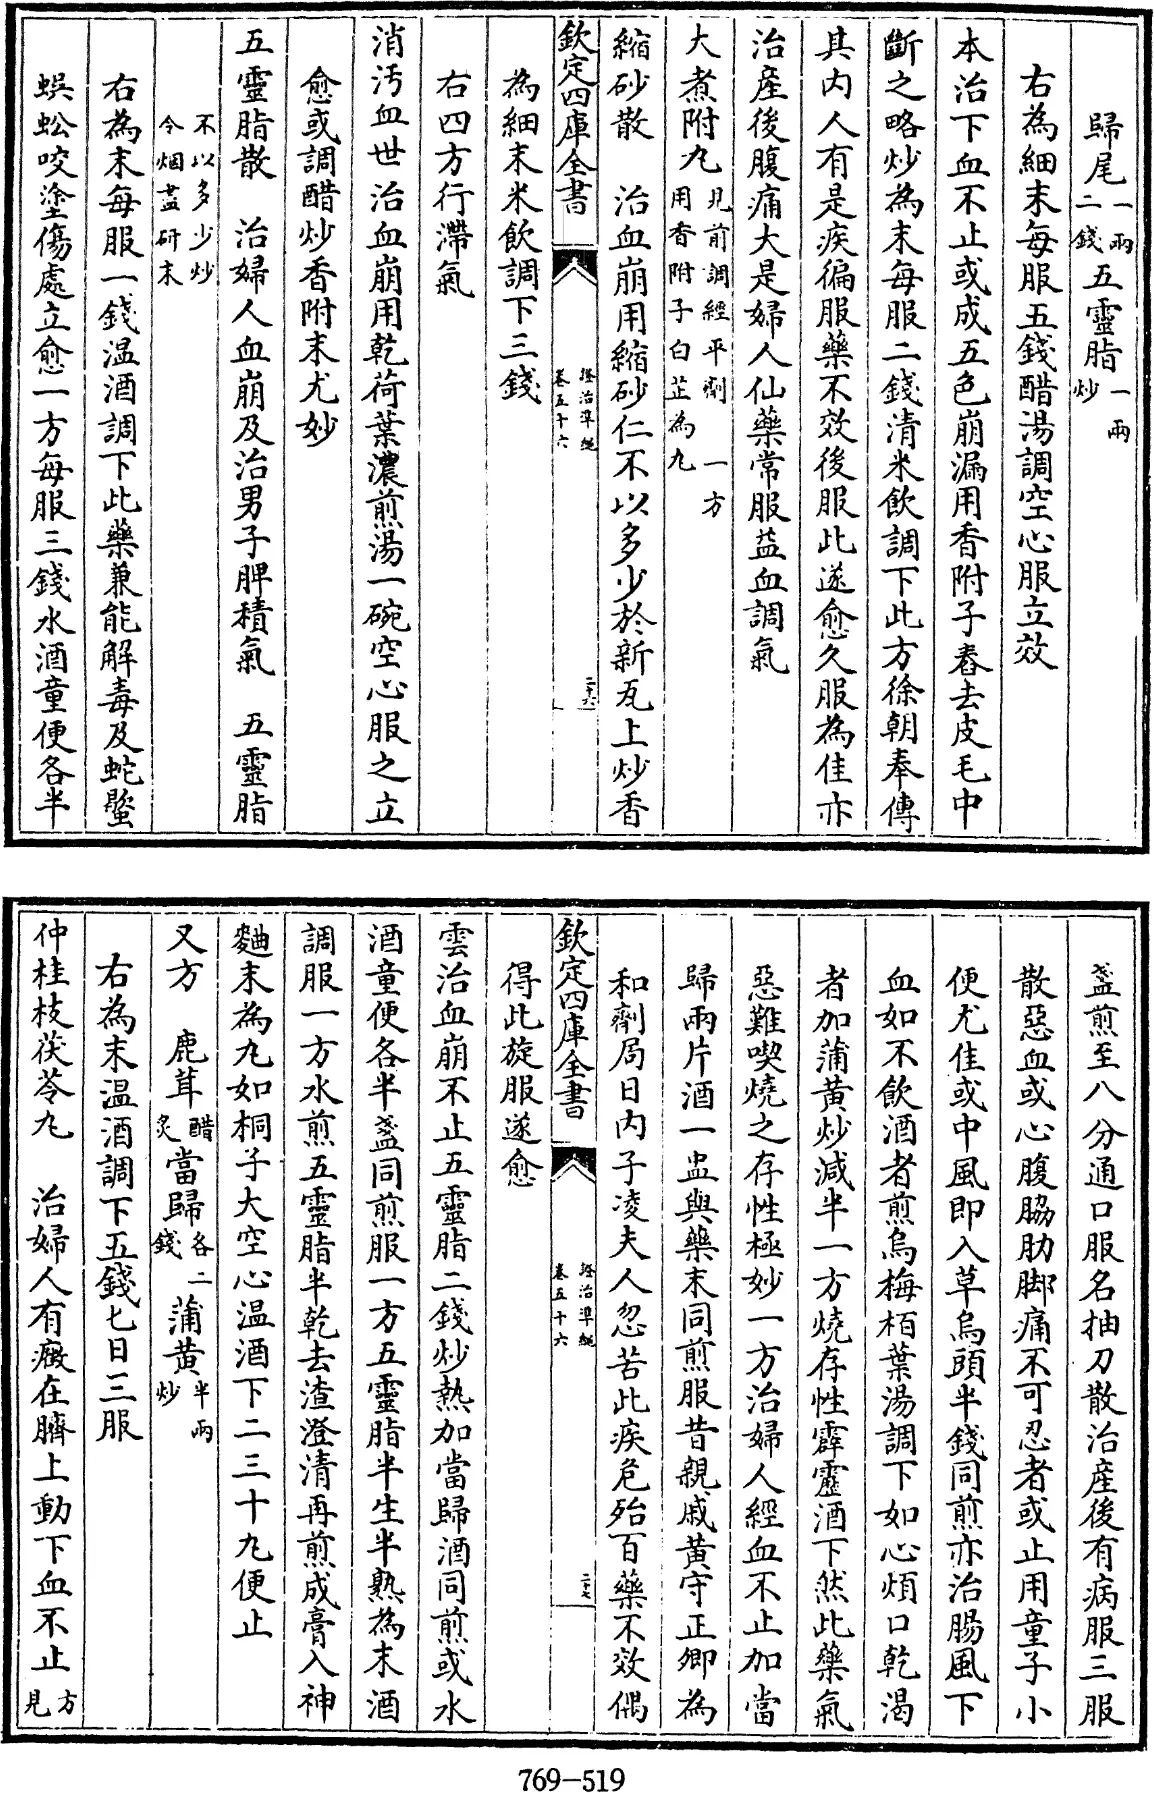 歸尾一兩二錢五靈脂一兩炒
右為細末每服五錢醋湯調空心服立效
本治下血不止或成五色崩漏用香附子舂去皮毛中
斷之略炒為末每服二錢清米飲調下此方徐朝奉傳
其内人有是疾徧服藥不效後服此遂愈久服為佳亦
治産後腹痛大是婦人仙藥常服益血調氣
大煮附丸見前調經平劑一方用香附子白芷為丸
縮砂散 治血崩用縮砂仁不以多少於新瓦上炒香
欽定四庫全書 證治凖繩 卷五十六 二十六
為細末米飲調下三錢
右四方行滯氣
消汚血世治血崩用乾荷葉濃煎湯一碗空心服之立
愈或調醋炒香附末尤妙
五靈脂散 治婦人血崩及治男子脾積氣 五靈脂
不以多少炒令烟盡研末
右為末每服一錢温酒調下此藥兼能解毒及蛇蠍
蜈蚣咬塗傷處立愈一方每服三錢水酒童便各半
盞煎至八分通口服名抽刀散治産後有病服三服
散惡血或心腹脇肋脚痛不可忍者或止用童子小
便尤佳或中風即入草烏頭半錢同煎亦治腸風下
血如不飲酒者煎烏梅栢葉湯調下如心煩口乾渴
者加蒲黄炒減半一方燒存性霹靂酒下然此藥氣
惡難喫燒之存性極妙一方治婦人經血不止加當
歸兩片酒一盅與藥末同煎服昔親戚黄守正卿為
和劑局日内子凌夫人忽苦此疾危殆百藥不效偶
欽定四庫全書 證治凖繩 卷五十六 二十七
得此旋服遂愈
雲治血崩不止五靈脂二錢炒熱加當歸酒同煎或水
酒童便各半盞同煎服一方五靈脂半生半熟為末酒
調服一方水煎五靈脂半乾去渣澄清再煎成膏入神
麯末為丸如桐子大空心温酒下二三十丸便止
又方 鹿茸醋炙當歸各二錢蒲黄半兩炒
右為末温酒調下五錢七日三服
仲桂枝茯苓丸 治婦人有癥在臍上動下血不止方見
769-519